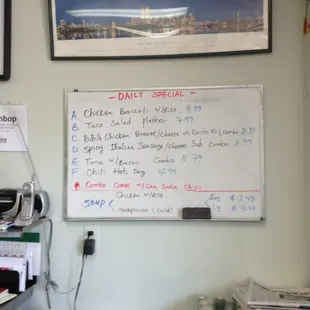 - DAILY SPECIAL -
A. Chicken Broccoli w/Rice. 7.99
B. Taco Salad platter 7.99
C. B.B.Q Chicken Breast/cheese on Kaiser Ro (combo 8.99
D. Spicy Italian Sausage/cheese Sub Combo 8.99
E Tuna w/Bacon Combo 8.79
F Chili Hot Dog 6.99
* Combo Comes w/ Can Soda Chips
Chicken w/Rice.
SOUP {
(cold)
$3.49
Lg $3.99
nbop